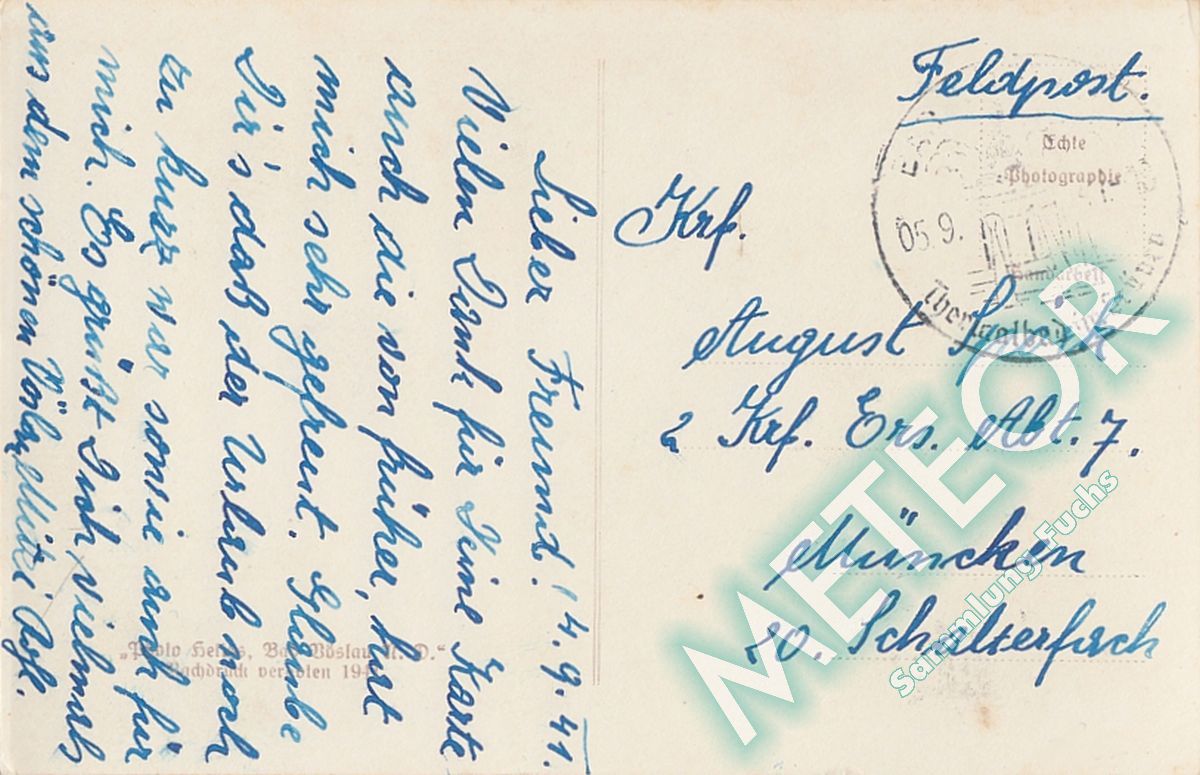 Lieber Freund! 4.9.41.
Vielen Dank für Deine Karte
auch die von früher, hat
mich sehr gefreut. Glaube
Dir's daß der Urlaub noch
zu kurz war sowie auch für
mich. Es grüßt Dich vielmals
aus dem schönen Vöslau, Mitzi
Feldpost.
Echte
Photographie
Handarbeit
05.9.
Thermalbad
Krf.
August
2 Krf. Ers. Abt. 7.
München
20. Schalterfach
Bad Vöslau, N. D."
Nachdruck verboten
METEOR
Sammlung-Fuchs